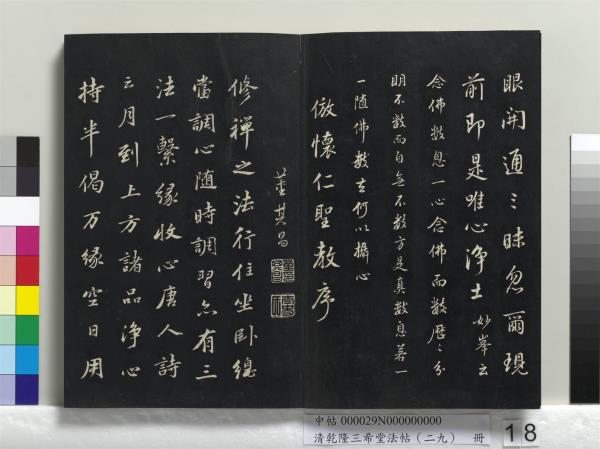 眼開通〻昧忽爾現
前即是唯心淨土妙峯云
念佛數息一心念佛而數歷〻分
明不數而自無不數方是真數息若一
一隨佛數去何以攝心
倣懷仁聖教序
董其昌
修禪之法行住坐卧總
當調心隨時調習亦有三
法一繫緣收心唐人詩
云月到上方諸品淨心
持半偈万緣空日用
中帖 000029N000000000
清乾隆三希堂法帖（二九） 冊
18